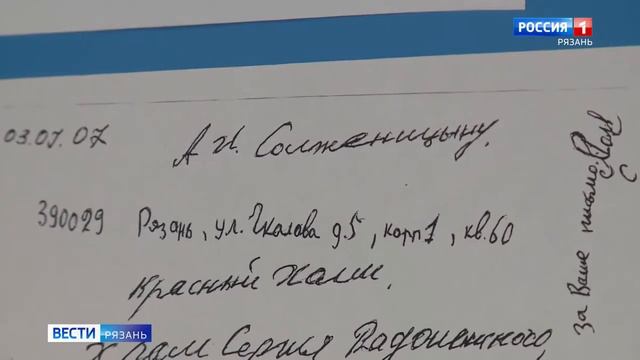 РОССИЯ 1
РЯЗАНЬ
03.07.07
А И. Солженицыну.
390029 Рязань, ул. Чкалова д.5, корп1, кв.60
Красный Холм.
Храм Сергия Радонежского
за Ваше письмо.
ВЕСТИ РЯЗАНЬ